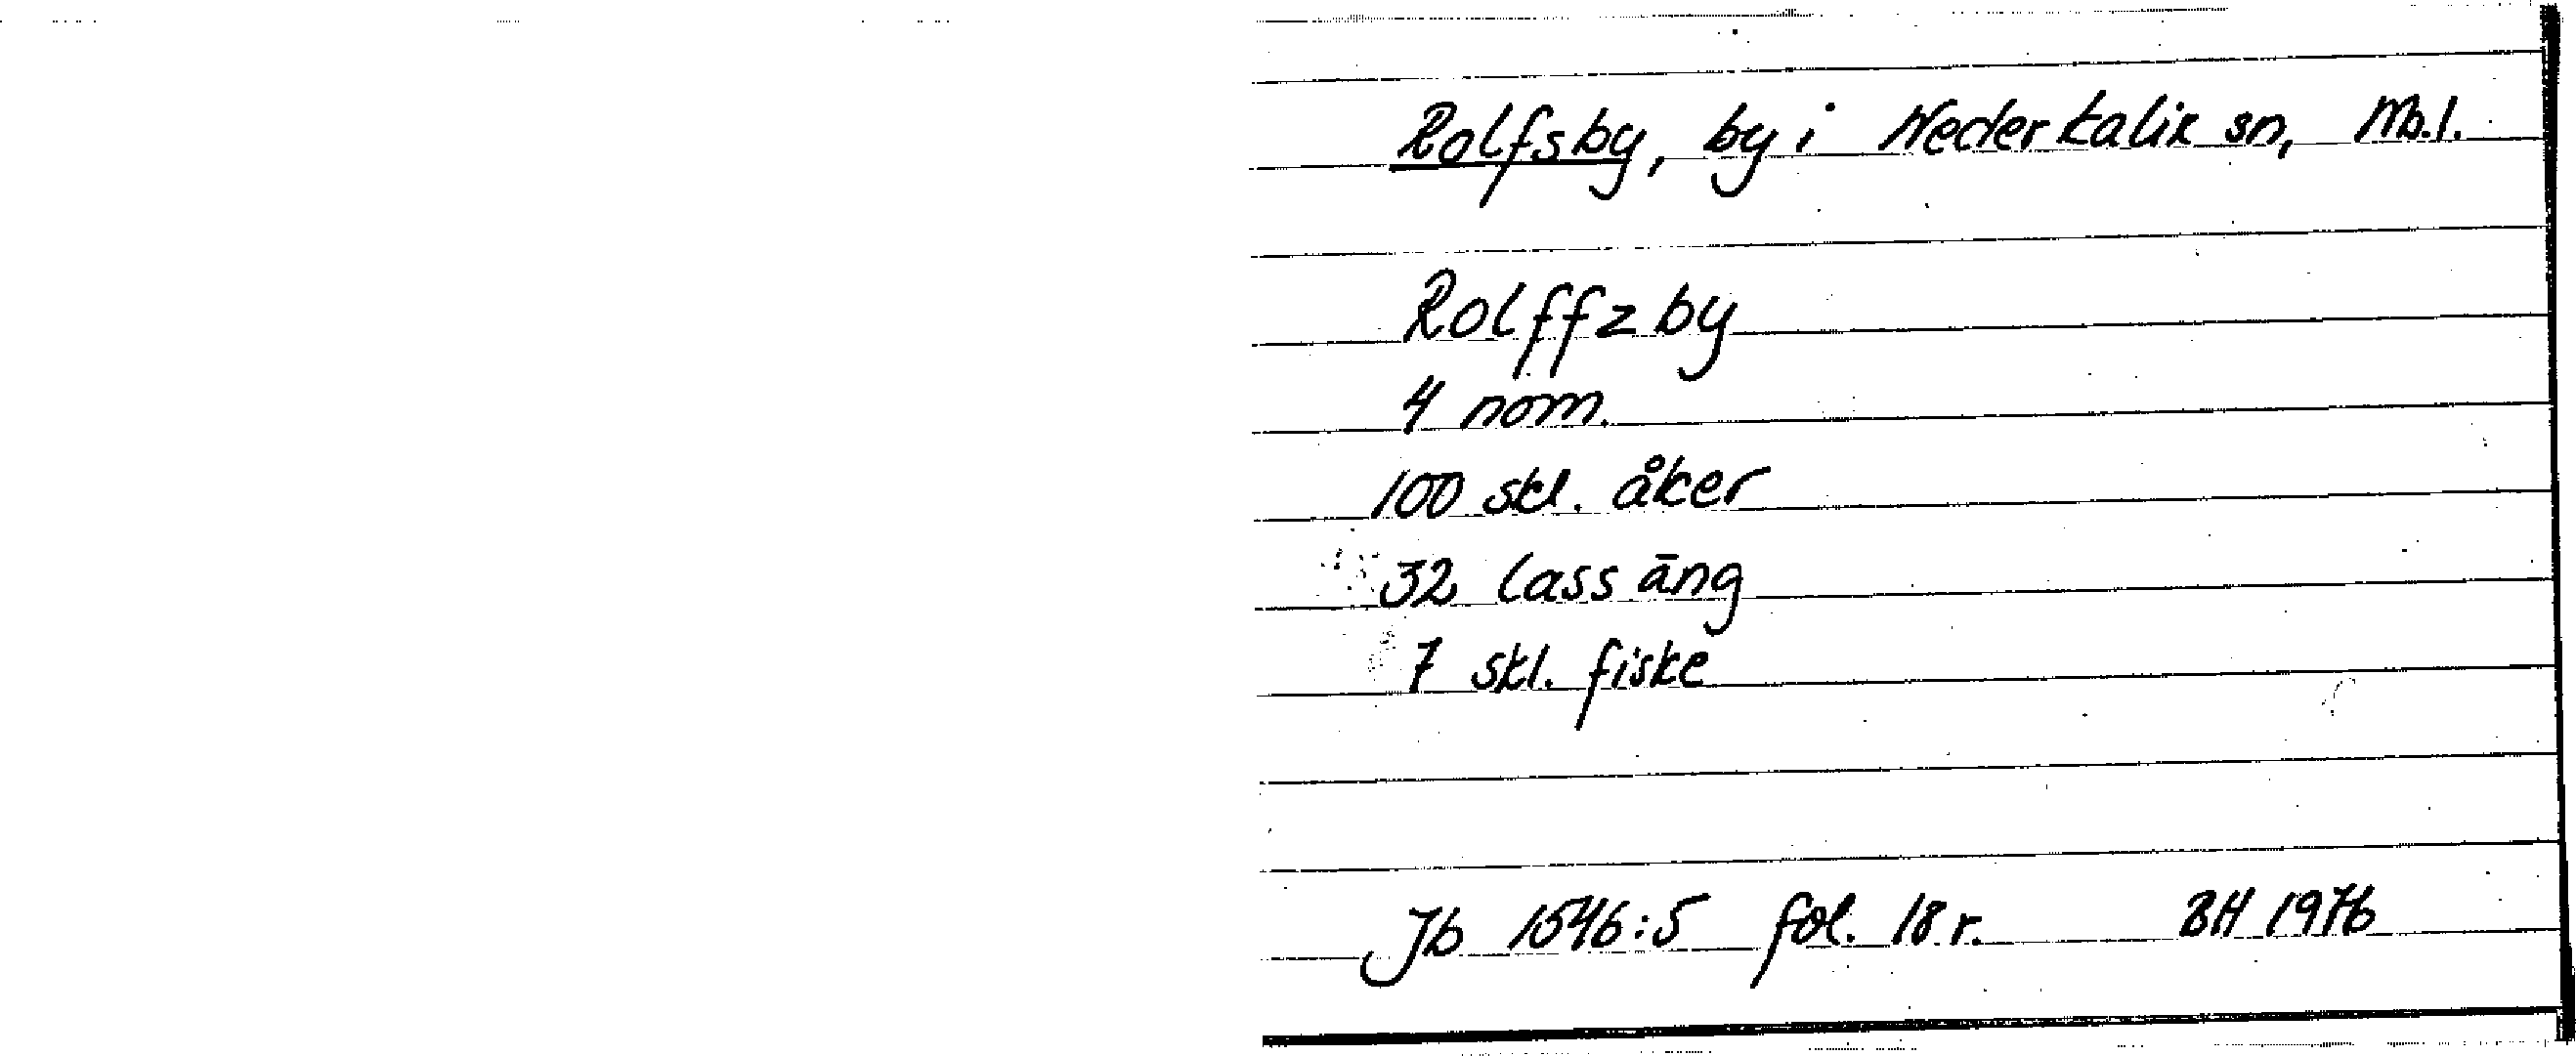 Rolfsby, by i Nederkalix sn, Nb.l.
Rolffzby
4 nom.
100 skl. åker
32 lass äng
7 skl. fiske
Jb 1546:5 fol. 18 r. BH 1976